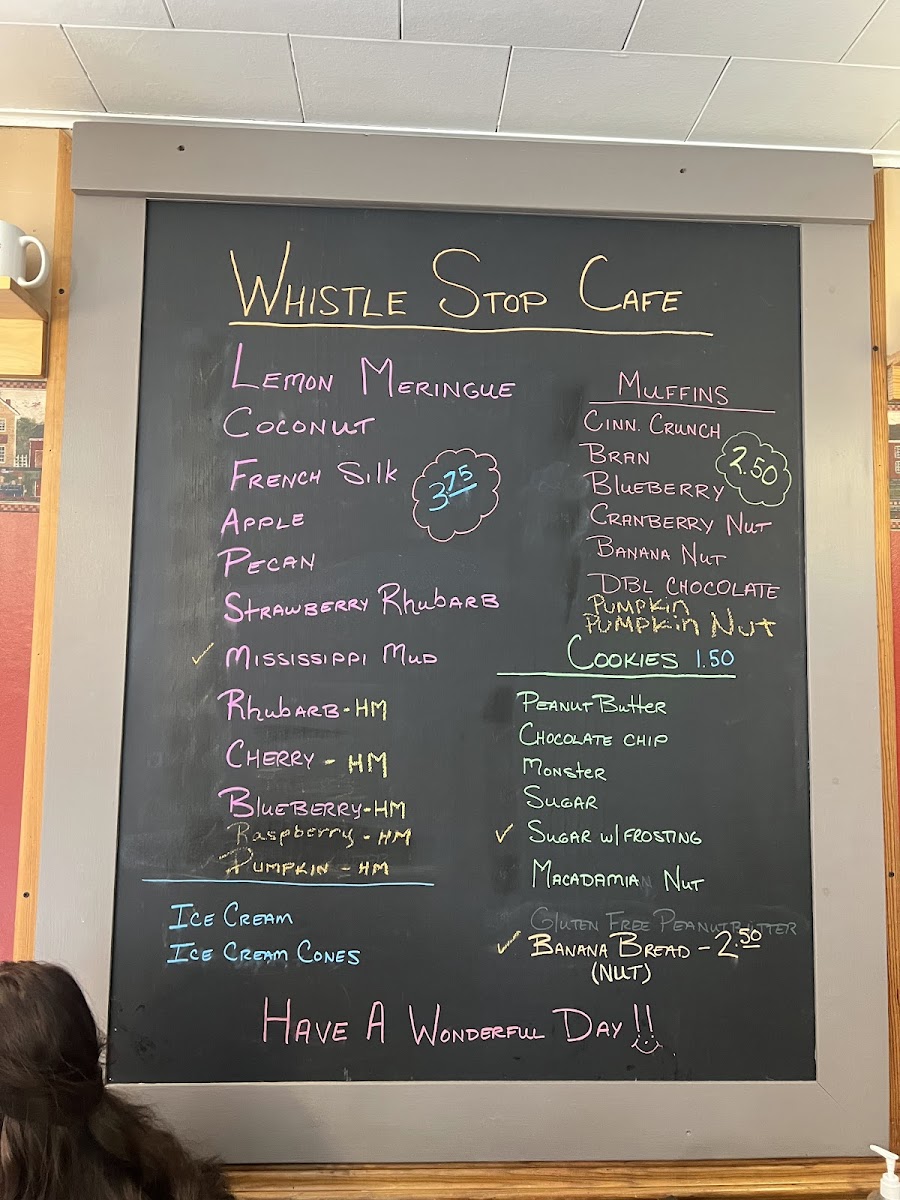 Whistle Stop Cafe
Lemon Meringue
Coconut
French Silk
3.75
Apple
Pecan
Strawberry Rhubarb
✓ Mississippi Mud
Rhubarb - HM
Cherry - HM
Blueberry - HM
Raspberry - HM
Pumpkin - HM
Ice Cream
Ice Cream Cones
Muffins
Cinn. Crunch
Bran
2.50
Blueberry
Cranberry Nut
Banana Nut
Dbl Chocolate
Pumpkin
Pumpkin Nut
Cookies 1.50
Peanut Butter
Chocolate Chip
Monster
Sugar
✓ Sugar w/ Frosting
Macadamia Nut
Gluten Free Peanut Butter
✓ Banana Bread - 2.50
(Nut)
Have A Wonderful Day!!